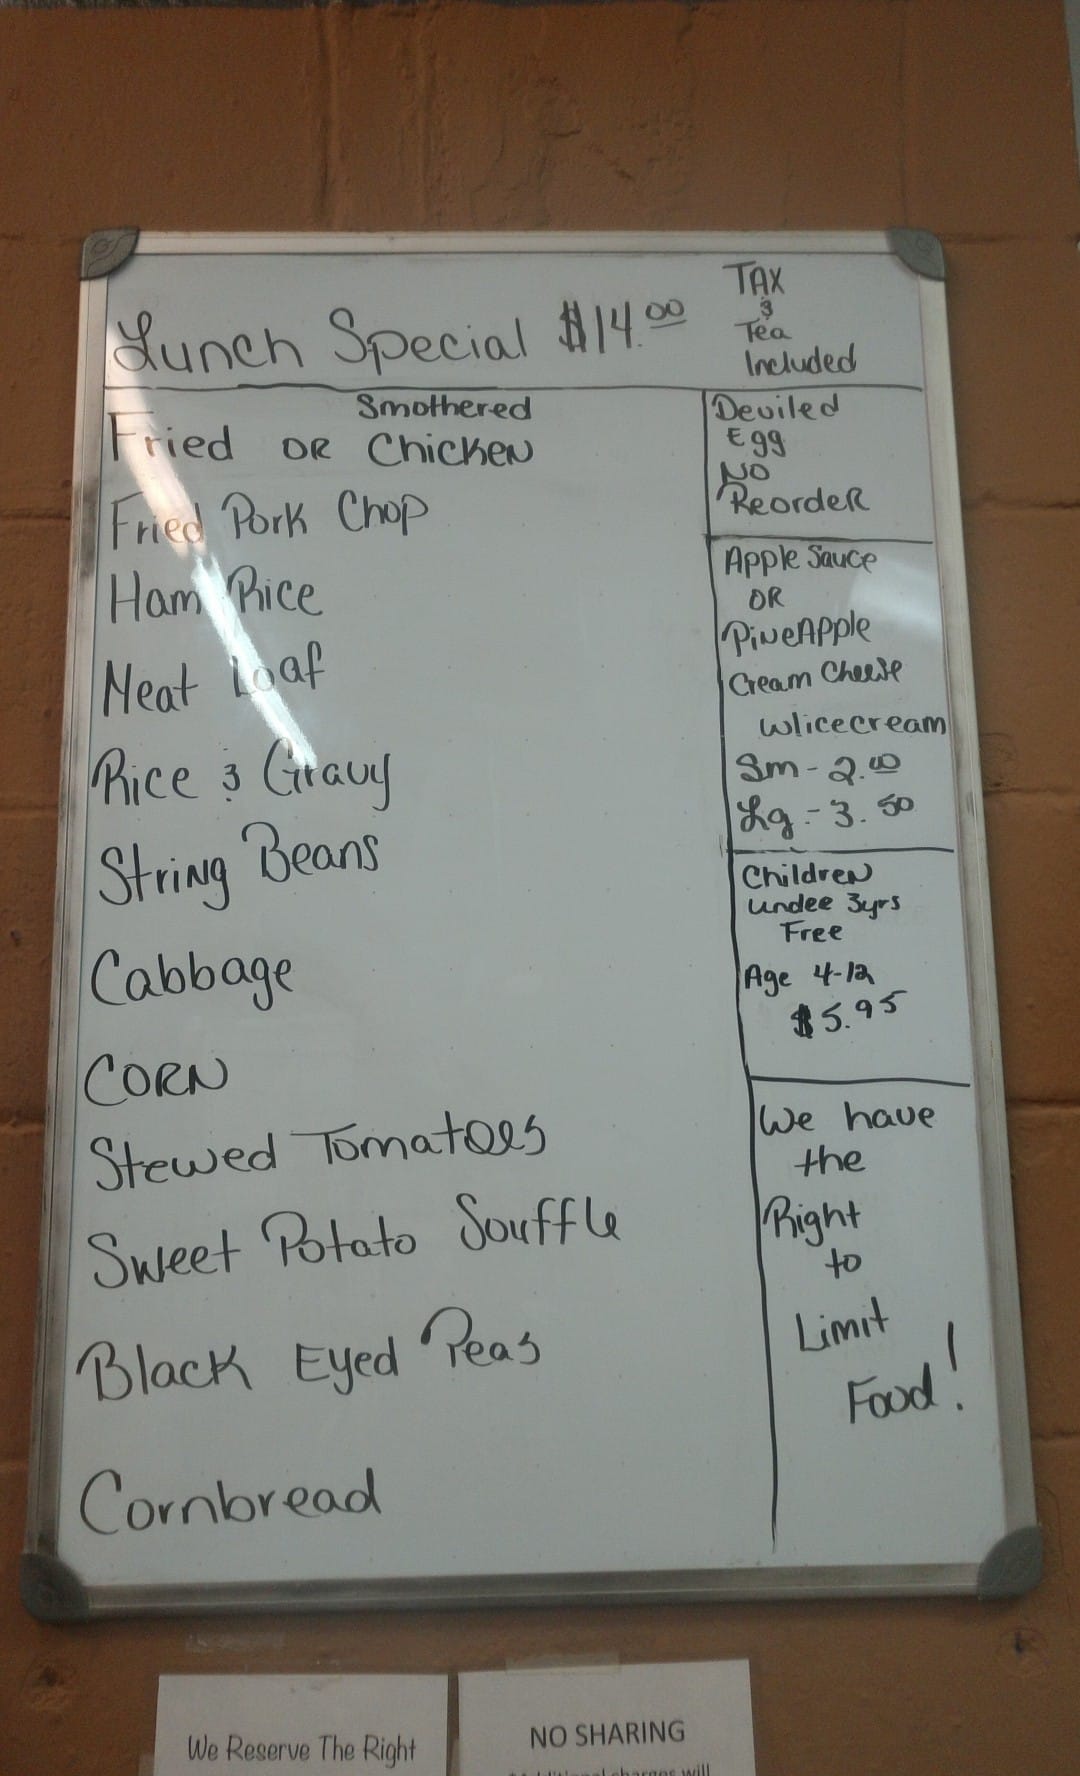 Lunch Special $14.00
TAX
&
Tea
Included
Smothered
Fried OR Chicken
Fried Pork Chop
Ham Rice
Meat Loaf
Rice & Gravy
String Beans
Cabbage
CORN
Stewed Tomatoes
Sweet Potato Souffle
Black Eyed Peas
Cornbread
Deviled
Egg
NO
Reorder
Apple Sauce
OR
PineApple
Cream Cheese
w/icecream
Sm - 2.00
Lg - 3.50
Children
undee 3yrs
Free
Age 4-12
$5.95
We have
the
Right
to
Limit
Food!
We Reserve The Right
NO SHARING
*Additional charges will